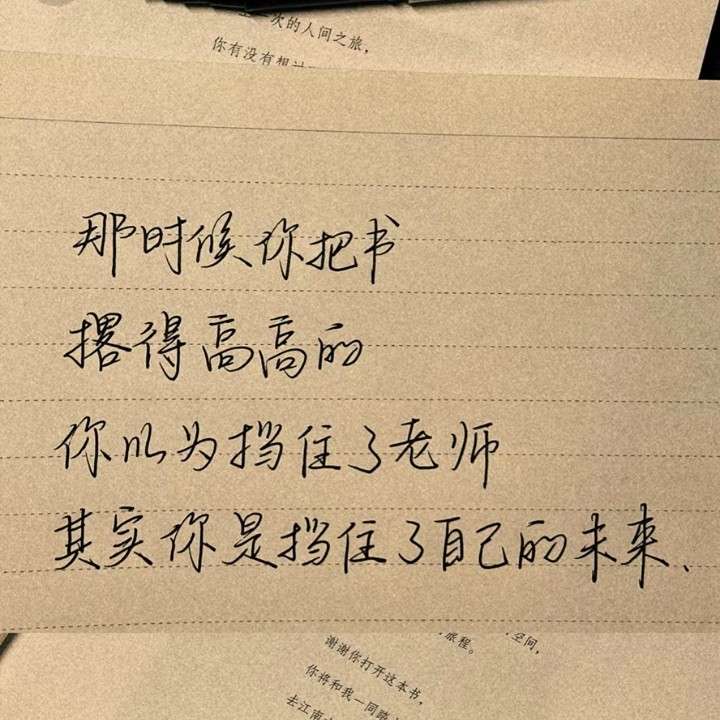 次的人间之旅，
你有没有想过
那时候你把书
撂得高高的
你以为挡住了老师
其实你是挡住了自己的未来、
空间，
旅程。
谢谢你打开这本书，
你将和我一同踏
去江南